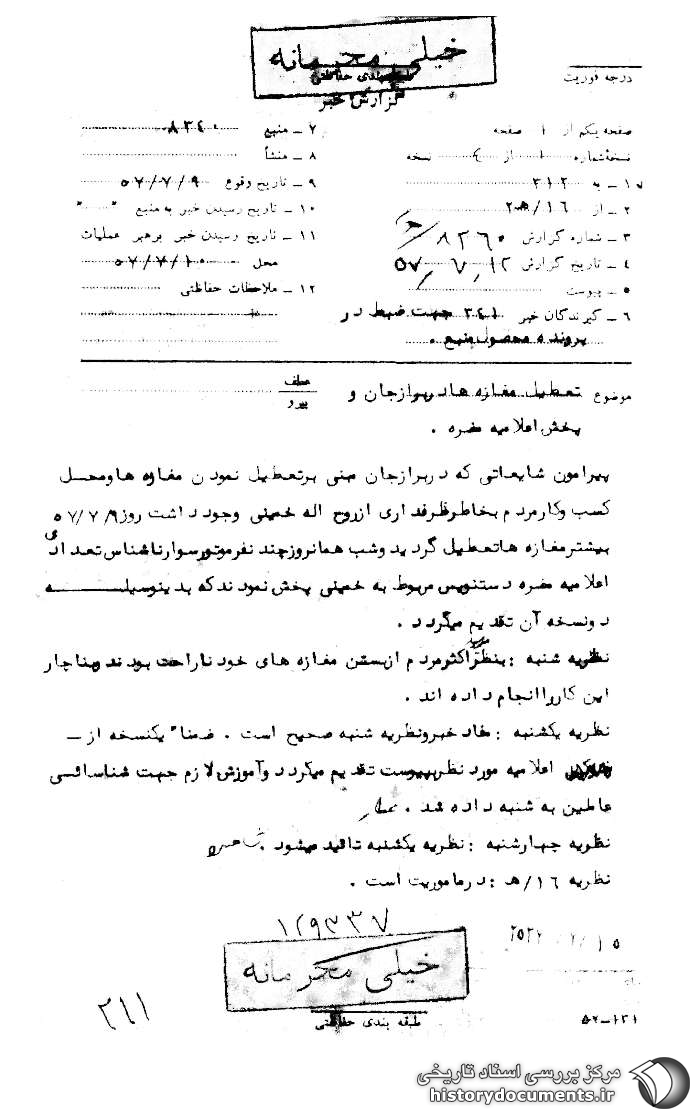 خیلی محرمانه
طبقه بندی حفاظتی
گزارش خبر
درجه فوریت
صفحه یکم از ۱ صفحه
نسخه شماره ۱ از ۴ نسخه
۱ــ به ۳۱۲
۲ــ از ۱۶/ه‍
۳ــ شماره گزارش ۸۲۶۰/ه‍
۴ــ تاریخ گزارش ۵۷/۷/۱۲
۵ــ پیوست
۶ــ گیرندگان خبر ۳۴۱ جهت ضبط در
پرونده محصول منبع .
۷ــ منبع ۸۳۴۰
۸ــ منشأ
۹ــ تاریخ وقوع ۵۷/۷/۹
۱۰ــ تاریخ رسیدن خبر به منبع " "
۱۱ــ تاریخ رسیدن خبر برهبر عملیات
محل ۵۷/۷/۱۰
۱۲ــ ملاحظات حفاظتی
موضوع تعطیل مغازه ها در برازجان و
پخش اعلامیه مضره .
عطف
پیرو
پیرامون شایعاتی که در برازجان مبنی بر تعطیل نمودن مغازه ها و محل
کسب و کار مردم بخاطر طرفداری از روح اله خمینی وجود داشت روز ۵۷/۷/۹
بیشتر مغازه ها تعطیل گردید و شب همانروز چند نفر موتورسوار ناشناس تعدادی
اعلامیه مضره دستنویس مربوط به خمینی پخش نمودند که بدینوسیله
دو نسخه آن تقدیم میگردد .
نظریه شنبه : بنظر میرسد اکثر مردم از بستن مغازه های خود ناراحت بودند و بناچار
این کار را انجام داده اند .
نظریه یکشنبه : مفاد خبر و نظریه شنبه صحیح است . ضمناً یکنسخه از ــ
اعلامیه مورد نظر بپیوست تقدیم میگردد و آموزش لازم جهت شناسائی
عاملین به شنبه داده شد .
نظریه چهارشنبه : نظریه یکشنبه تائید میشود .
نظریه ۱۶/ه‍ : در ماموریت است .
۱۲۹۳۳۷
خیلی محرمانه
طبقه بندی حفاظتی
۲۱۱
۵۲ــ۱۳۱
مرکز بررسی اسناد تاریخی
historydocuments.ir